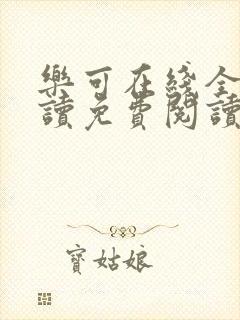 樂可在綫全
讀免費閱讀
寶姑娘